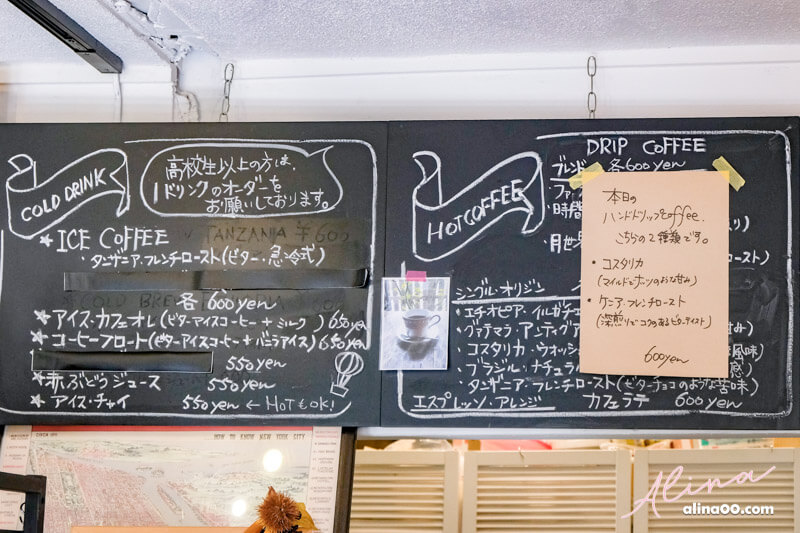 COLD DRINK
高校生以上の方は、
1ドリンクのオーダーを
お願いしております。
★ ICE COFFEE TANZANIA
・タンザニア・フレンチロースト(ビター・急冷式)
COLD BREW
各 600yen
★アイス・カフェオレ(ビターアイスコーヒー + ミルク) 650yen
★コーヒーフロート(ビターアイスコーヒー + バニラアイス) 650yen
550yen
★赤ぶどうジュース 550yen
★アイス・チャイ 550yen ← HOTもOK!
HOT COFFEE
DRIP COFFEE
ブレンド 各600yen
シングル・オリジン
・エチオピア・イルガチェ
・グァテマラ・アンティグア
・コスタリカ・ウォッシュ 風味)
・ブラジル・ナチュラ 感)
・タンザニア・フレンチロースト(ビターチョコのような苦味)
エスプレッソ・アレンジ カフェラテ 600yen
本日の
ハンドドリップcoffee、
こちらの2種類です。
・コスタリカ
(マイルドでナッツのような甘み)
・ケニア・フレンチロースト
(深煎りでコクのあるビターテイスト)
600yen
HOW TO KNOW NEW YORK CITY
Alina
alina00.com